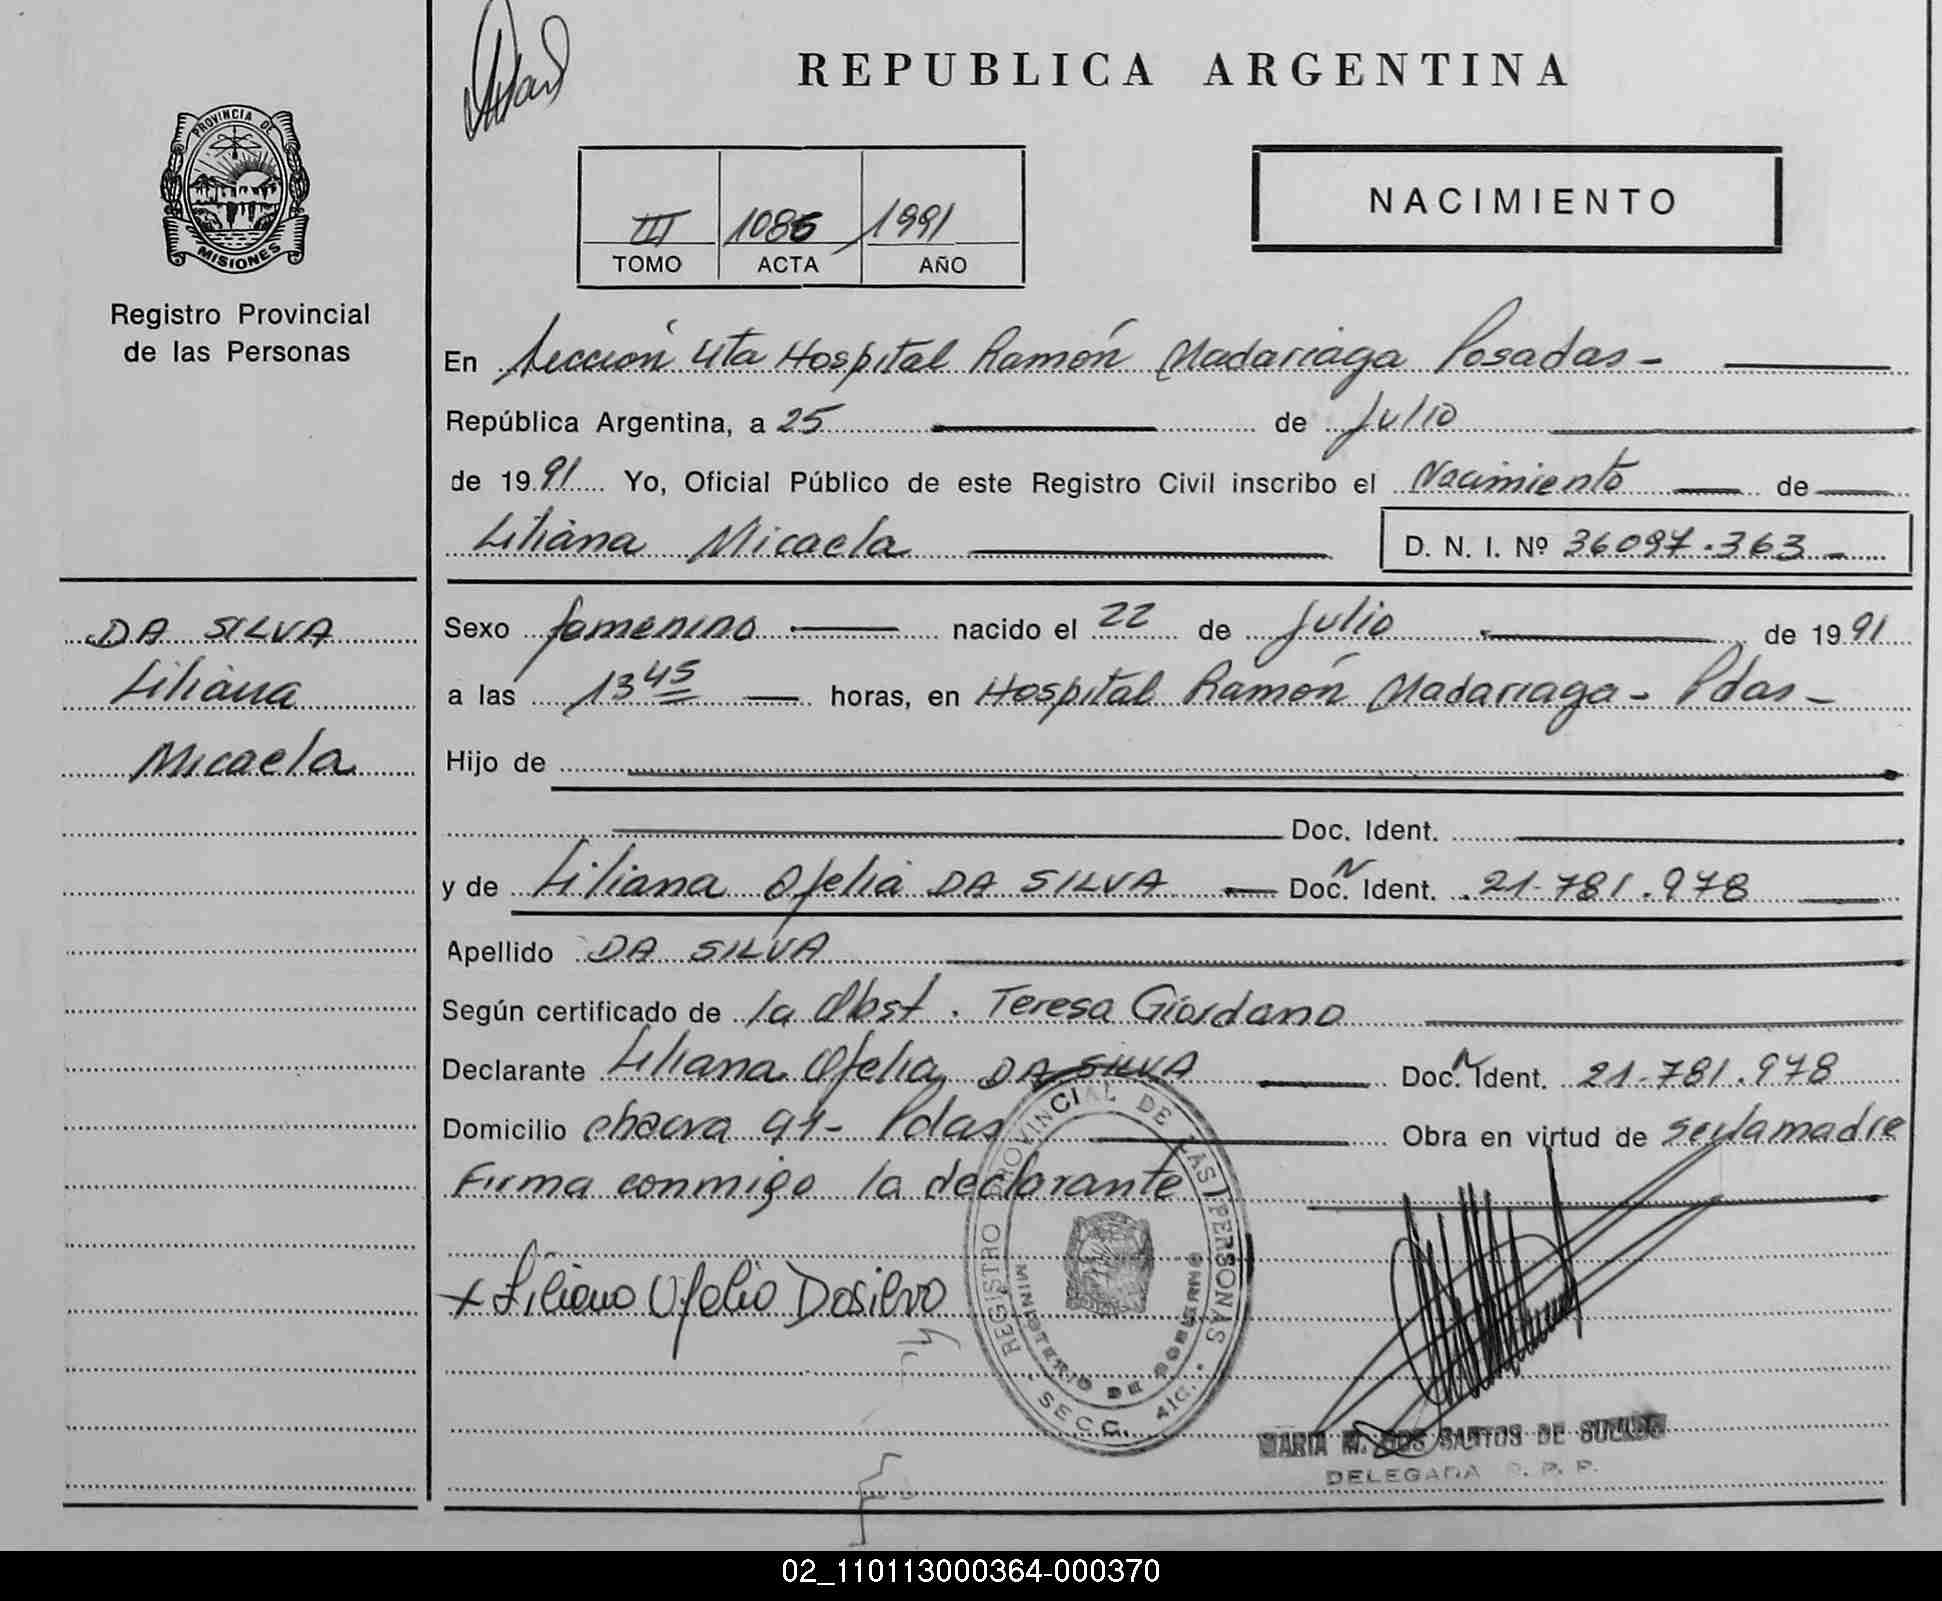 REPUBLICA ARGENTINA
PROVINCIA DE
MISIONES
Registro Provincial
de las Personas
III 1086 1991
TOMO ACTA AÑO
NACIMIENTO
En Sección 4ta Hospital Ramón Madariaga Posadas -
República Argentina, a 25 de Julio
de 1991 Yo, Oficial Público de este Registro Civil inscribo el Nacimiento de
Liliana Micaela D. N. I. Nº 36097.363
DA SILVA
Liliana
Micaela
Sexo femenino nacido el 22 de Julio de 1991
a las 13 45 horas, en Hospital Ramón Madariaga - Pdas -
Hijo de
Doc. Ident.
y de Liliana Ofelia DA SILVA Doc. N Ident. 21.781.978
Apellido DA SILVA
Según certificado de la Obst. Teresa Giordano
Declarante Liliana Ofelia DA SILVA Doc. N Ident. 21.781.978
Domicilio chacra 91- Pdas Obra en virtud de ser la madre
Firma conmigo la declarante
x Liliana Ofelia Dasilva
REGISTRO PROVINCIAL DE LAS PERSONAS
MINISTERIO DE GOBIERNO
SECC. 4ta.
MARIA M. DOS SANTOS DE
DELEGADA R. P. P.
02_110113000364-000370